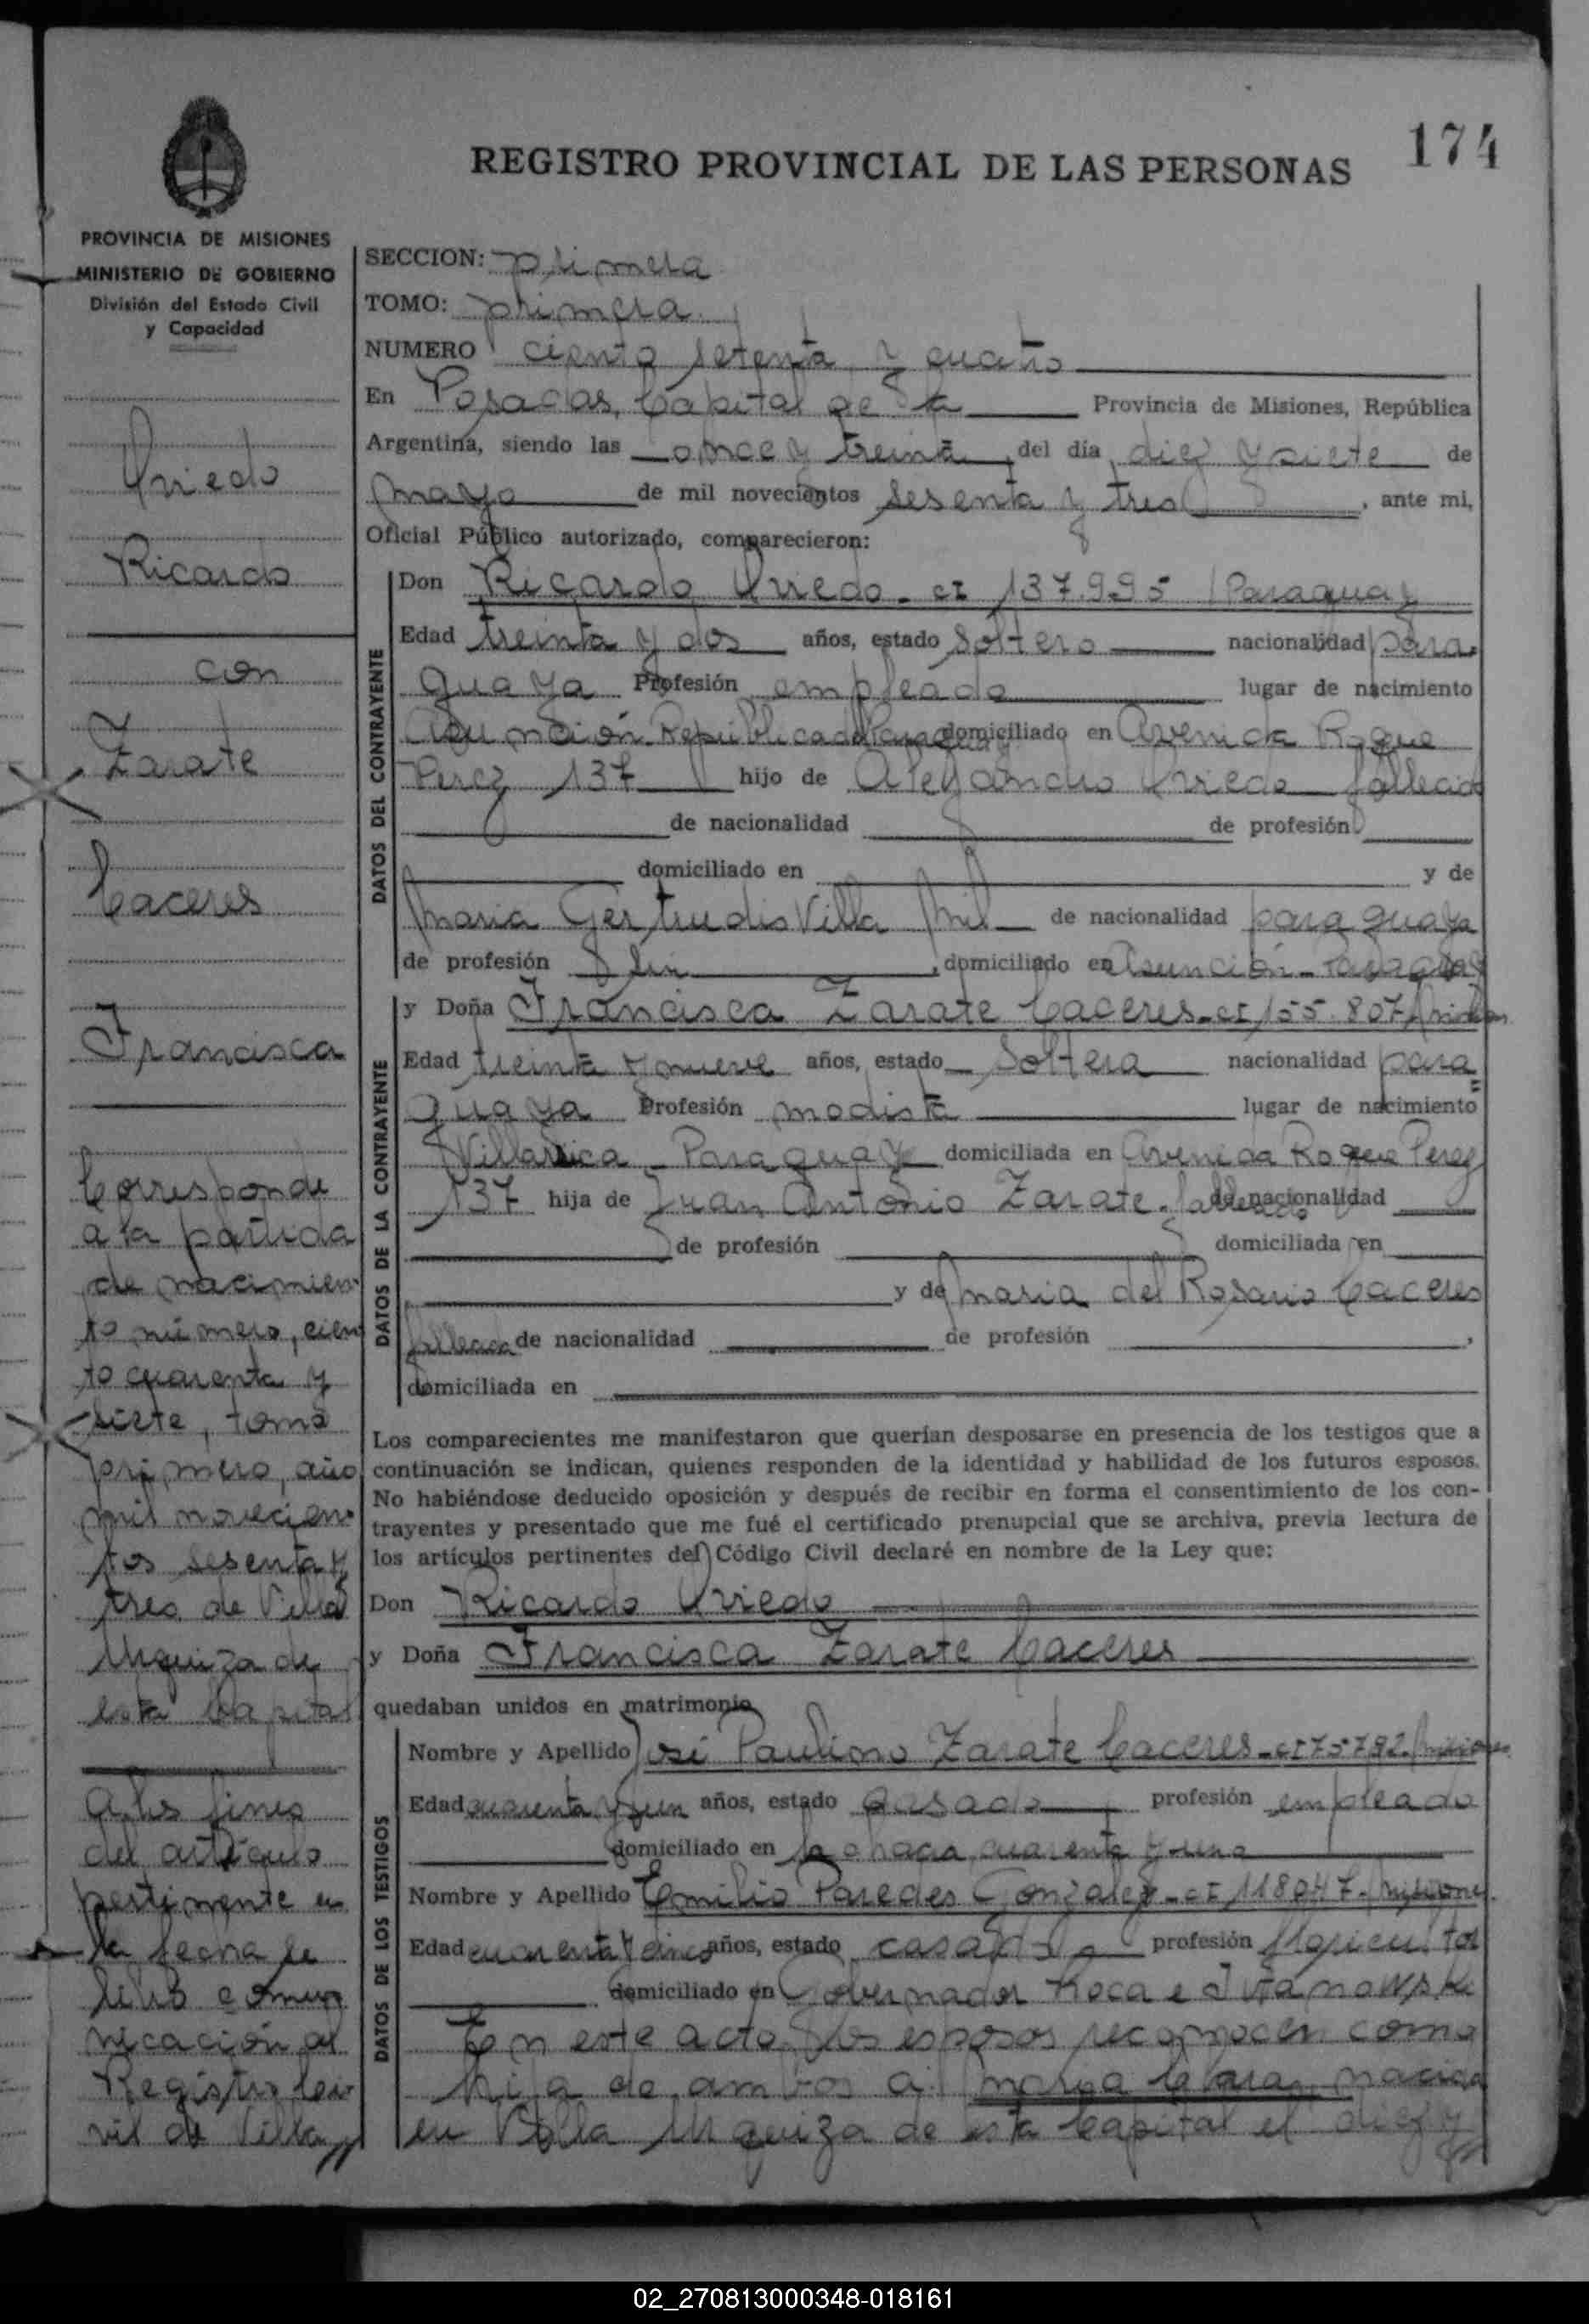 174
REGISTRO PROVINCIAL DE LAS PERSONAS
PROVINCIA DE MISIONES
MINISTERIO DE GOBIERNO
División del Estado Civil
y Capacidad
Oviedo
Ricardo
con
Zarate
Caceres
Francisca
Corresponde
a la partida
de nacimien
to número, cien
to cuarenta y
siete, tomo
primero, año
mil novecien
tos sesenta y
tres de Villa
Urquiza de
esta Capital
A los fines
del artículo
pertinente en
la fecha se
libró comu
nicación al
Registro Ci
vil de Villa
SECCION: primera
TOMO: primera
NUMERO ciento setenta y cuatro
En Posadas, Capital de la Provincia de Misiones, República
Argentina, siendo las once y treinta, del día diez y siete de
mayo de mil novecientos sesenta y tres, ante mi,
Oficial Público autorizado, comparecieron:
DATOS DEL CONTRAYENTE
Don Ricardo Oviedo - CI 137.995 Paraguay
Edad treinta y dos años, estado soltero nacionalidad para
guaya Profesión empleado lugar de nacimiento
Asunción República del Paraguay domiciliado en Avenida Roque
Perez 137 hijo de Alejandro Oviedo fallecido
de nacionalidad de profesión
domiciliado en y de
Maria Gertrudis Villa de nacionalidad paraguaya
de profesión sin, domiciliado en Asunción - Paraguay
DATOS DE LA CONTRAYENTE
y Doña Francisca Zarate Caceres - CI 155.807 Misiones
Edad treinta y nueve años, estado Soltera nacionalidad para
guaya Profesión modista lugar de nacimiento
Villarrica - Paraguay domiciliada en Avenida Roque Perez
137 hija de Juan Antonio Zarate - fallecido de nacionalidad
de profesión domiciliada en
y de Maria del Rosario Caceres
fallecida de nacionalidad de profesión ,
domiciliada en
Los comparecientes me manifestaron que querían desposarse en presencia de los testigos que a
continuación se indican, quienes responden de la identidad y habilidad de los futuros esposos.
No habiéndose deducido oposición y después de recibir en forma el consentimiento de los con-
trayentes y presentado que me fué el certificado prenupcial que se archiva, previa lectura de
los artículos pertinentes del Código Civil declaré en nombre de la Ley que:
Don Ricardo Oviedo
y Doña Francisca Zarate Caceres
quedaban unidos en matrimonio
DATOS DE LOS TESTIGOS
Nombre y Apellido José Paulino Zarate Caceres - CI 75792 Misiones
Edad cuarenta y un años, estado casado profesión empleado
domiciliado en la chacra cuarenta y una
Nombre y Apellido Emilio Paredes Gonzalez - CI 118047 - Misiones
Edad cuarenta y cinco años, estado casado profesión
domiciliado en Gobernador Roca e Ivanowski
En este acto los esposos reconocen como
hija de ambos a Clara, nacida
en Villa Urquiza de esta Capital el diez y
02_270813000348-018161